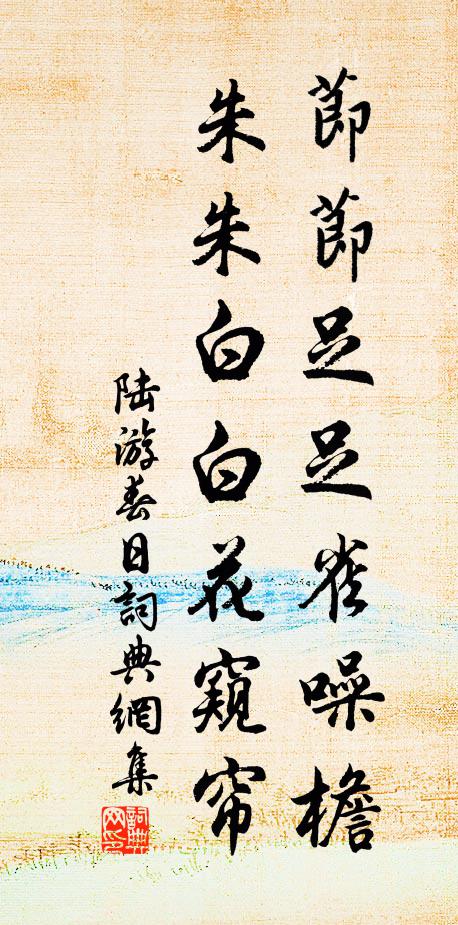 節節足足雀噪檐
朱朱白白花窺帘
陸游春日詞典網集
詞典網印